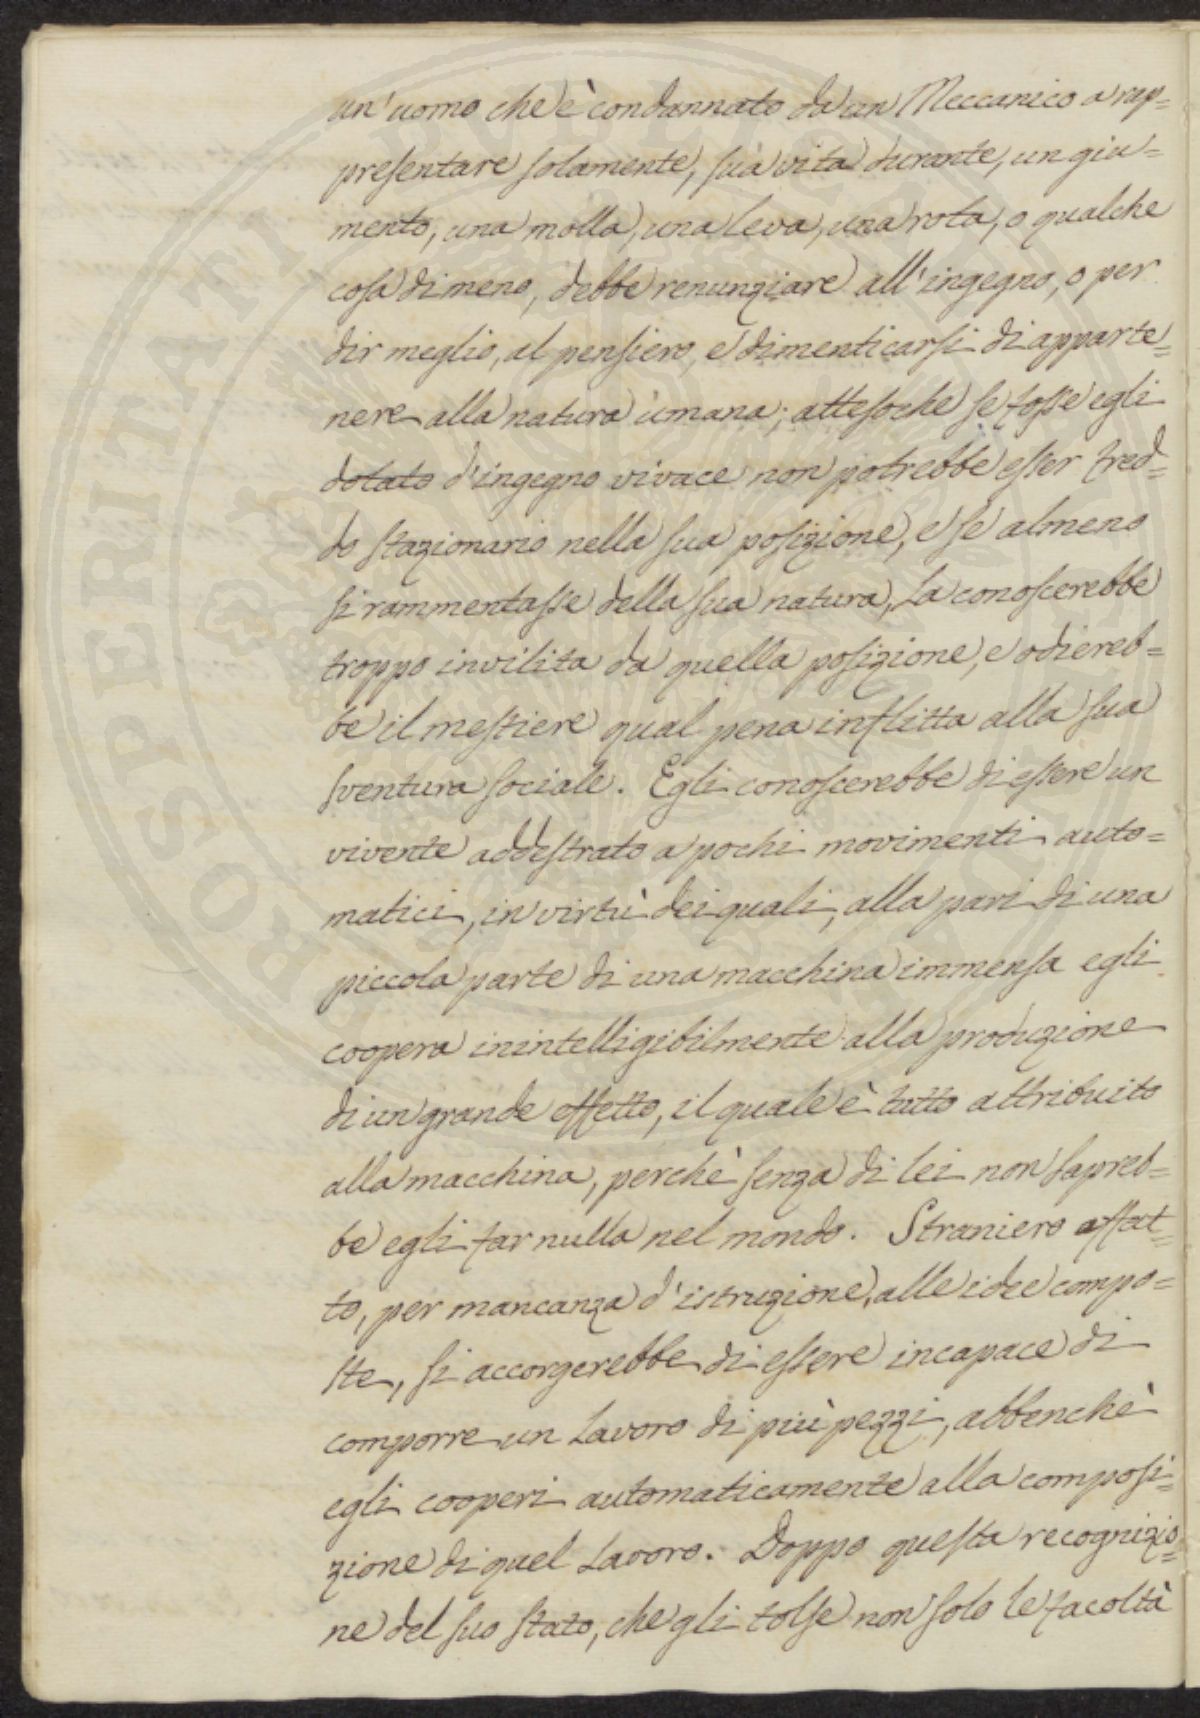 un'uomo che è condannato da un Meccanico a rap=
presentare solamente, sua vita durante, un giu=
mento, una molla, una leva, una rota, o qualche
cosa di meno, debbe renunziare all'ingegno, o per
dir meglio, al pensiero, e dimenticarsi di apparte=
nere alla natura umana; attesochè se fosse egli
dotato d'ingegno vivace non potrebbe esser fred=
do stazionario nella sua posizione, e se almeno
si rammentasse della sua natura, la conoscerebbe
troppo invilita da quella posizione, e odiereb=
be il mestiere qual pena inflitta alla sua
sventura sociale. Egli conoscerebbe di essere un
vivente addestrato a pochi movimenti auto=
matici, in virtù dei quali, alla pari di una
piccola parte di una macchina immensa egli
coopera inintelligibilmente alla produzione
di un grande effetto, il quale è tutto attribuito
alla macchina, perchè senza di lei non sapreb=
be egli far nulla nel mondo. Straniero affat=
to, per mancanza d'istruzione, alle idee compo=
ste, si accorgerebbe di essere incapace di
comporre un lavoro di più pezzi, abbenchè
egli cooperi automaticamente alla composi=
zione di quel lavoro. Doppo questa recognizio=
ne del suo stato, che gli tolse non solo le facoltà
PROSPERITATI PUBLICAE